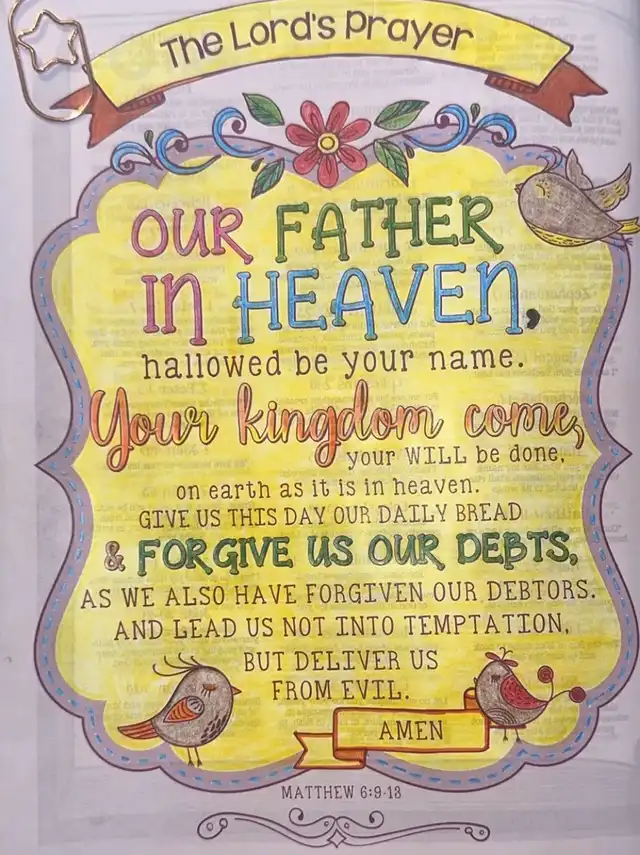 The Lord's Prayer
OUR FATHER
IN HEAVEN,
hallowed be your name.
Your kingdom come,
your WILL be done,
on earth as it is in heaven.
GIVE US THIS DAY OUR DAILY BREAD
& FORGIVE US OUR DEBTS,
AS WE ALSO HAVE FORGIVEN OUR DEBTORS.
AND LEAD US NOT INTO TEMPTATION,
BUT DELIVER US
FROM EVIL.
AMEN
MATTHEW 6:9-13